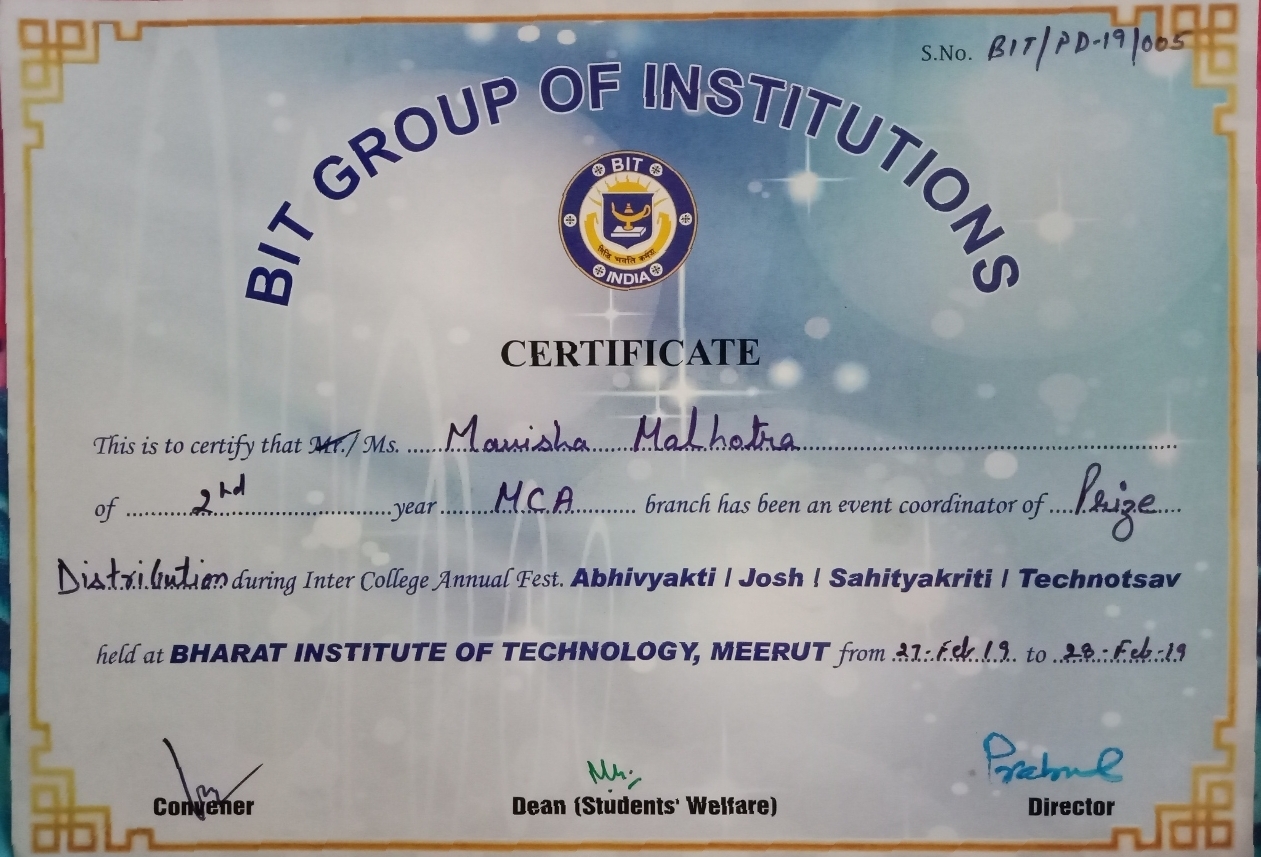 S.No. BIT/PD-19/005
BIT GROUP OF INSTITUTIONS
BIT
सिद्धि भवति कर्मजा
INDIA
CERTIFICATE
This is to certify that Mr./ Ms. Manisha Malhotra
of 2nd year MCA branch has been an event coordinator of Prize
Distribution during Inter College Annual Fest. Abhivyakti / Josh / Sahityakriti / Technotsav
held at BHARAT INSTITUTE OF TECHNOLOGY, MEERUT from 27-Feb 19 to 28-Feb-19
Convener Dean (Students' Welfare) Director